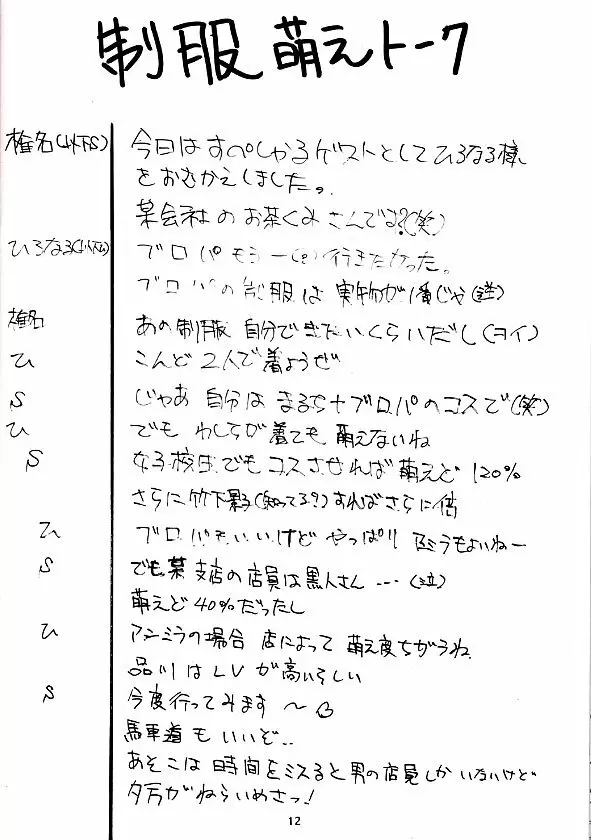 制服 萌えトーク
椎名(以下S) 今日は すぺしゃるゲストとして ひろなる様
をおむかえしました。
某会社の お茶くみ さんでは?(笑)
ひろなる(以下ひ) ブロパ もう一(?)行きたかった。
ブロパの 制服は 実物が1番じゃ
椎名 あの制服 自分できたいくらいだし(ヨイ)
ひ こんど 2人で着ようぜ
S じゃあ 自分は まるち+ブロパのコスで(笑)
ひ でも わしらが着ても 萌えないね
S 女子校生でもコスさせれば萌えど 120%
さらに竹下 (知ってる?)すればさらに倍
ひ ブロパもいいけど やっぱり アンミラもよいねー
S でも、某支店の店員は黒人さん … (泣)
萌えど 40%だったし
ひ アンミラの場合 店によって 萌え度ちがうね
品川は LV が高いらしい
S 今度行ってみます 〜
馬車道 も いいぞ..
あそこは 時間をミスると男の店員しか いないけど
夕方がねらいめさっ!
12